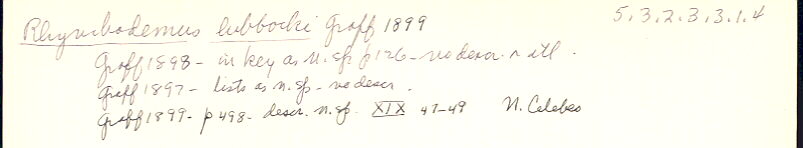 Rhynchodemus lubbocki Graff 1899 5.3.2.3.3.1.4
Graff 1898 - in key as n.sp p 126 - no descr. n atl.
Graff 1897 - lists as n.sp - no descr.
Graff 1899 - p 498 - descr. n.sp. XIX 47-49 N. Celebes